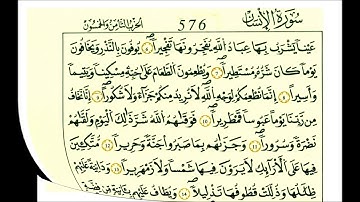 سُورَةُ الْإِنْسَانِ 576 الحزب الثامن والخمسون
عَيْنًا يَشْرَبُ بِهَا عِبَادُ اللَّهِ يُفَجِّرُونَهَا تَفْجِيرًا ٦ يُوفُونَ بِالنَّذْرِ وَيَخَافُونَ
يَوْمًا كَانَ شَرُّهُ مُسْتَطِيرًا ٧ وَيُطْعِمُونَ الطَّعَامَ عَلَىٰ حُبِّهِ مِسْكِينًا وَيَتِيمًا
وَأَسِيرًا ٨ إِنَّمَا نُطْعِمُكُمْ لِوَجْهِ اللَّهِ لَا نُرِيدُ مِنكُمْ جَزَاءً وَلَا شُكُورًا ٩ إِنَّا نَخَافُ
مِن رَّبِّنَا يَوْمًا عَبُوسًا قَمْطَرِيرًا ١٠ فَوَقَاهُمُ اللَّهُ شَرَّ ذَٰلِكَ الْيَوْمِ وَلَقَّاهُمْ
نَضْرَةً وَسُرُورًا ١١ وَجَزَاهُم بِمَا صَبَرُوا جَنَّةً وَحَرِيرًا ١٢ مُتَّكِئِينَ
فِيهَا عَلَى الْأَرَائِكِ لَا يَرَوْنَ فِيهَا شَمْسًا وَلَا زَمْهَرِيرًا ١٣ وَدَانِيَةً عَلَيْهِمْ
ظِلَالُهَا وَذُلِّلَتْ قُطُوفُهَا تَذْلِيلًا ١٤ وَيُطَافُ عَلَيْهِم بِآنِيَةٍ مِّن فِضَّةٍ